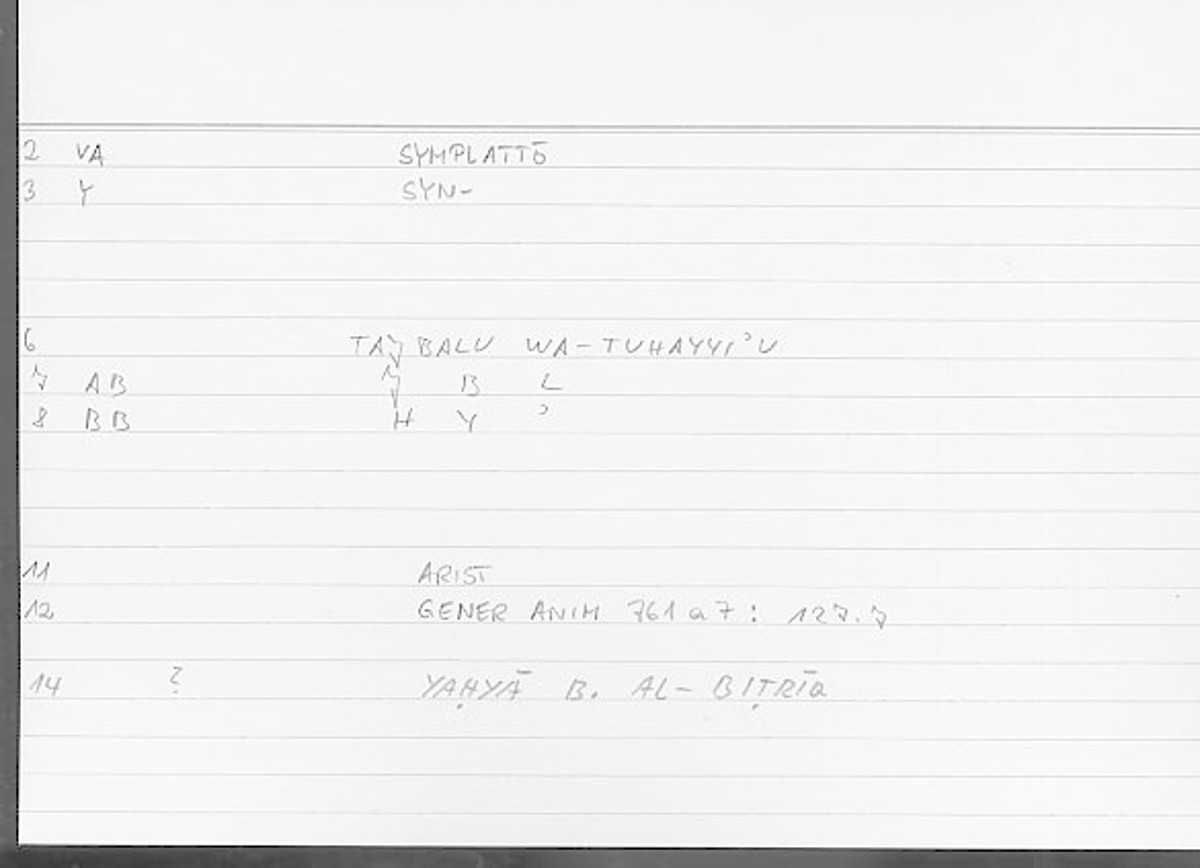 2 VA SYMPLATTŌ
3 Y SYN-
6 TAJBALU WA-TUHAYYIʾU
7 AB J B L
8 BB H Y ʾ
11 ARIST
12 GENER ANIM 761a7: 127.7
14 ? YAḤYĀ B. AL-BIṬRĪQ